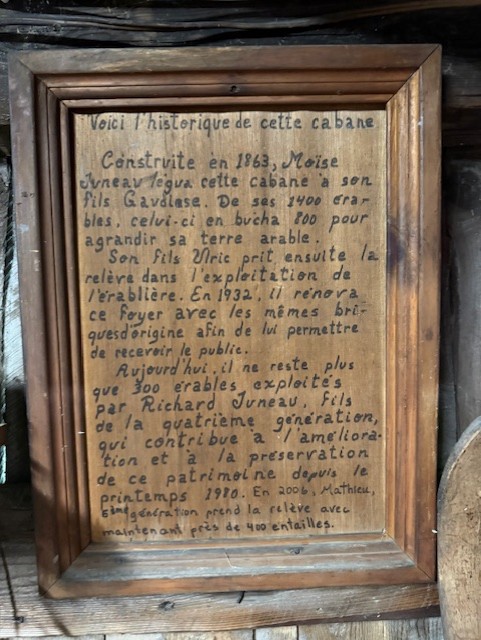 Voici l'historique de cette cabane
Construite en 1863, Moïse
Juneau légua cette cabane à son
fils Gaudiose. De ses 1400 érar-
bles, celui-ci en bûcha 800 pour
agrandir sa terre arable.
Son fils Ulric prit ensuite la
relève dans l'exploitation de
l'érablière. En 1932, il rénova
ce foyer avec les mêmes bri-
ques d'origine afin de lui permettre
de recevoir le public.
Aujourd'hui, il ne reste plus
que 300 érables exploités
par Richard Juneau, fils
de la quatrième génération,
qui contribue à l'améliora-
tion et à la préservation
de ce patrimoine depuis le
printemps 1980. En 2006, Mathieu,
5ème génération prend la relève avec
maintenant près de 400 entailles.